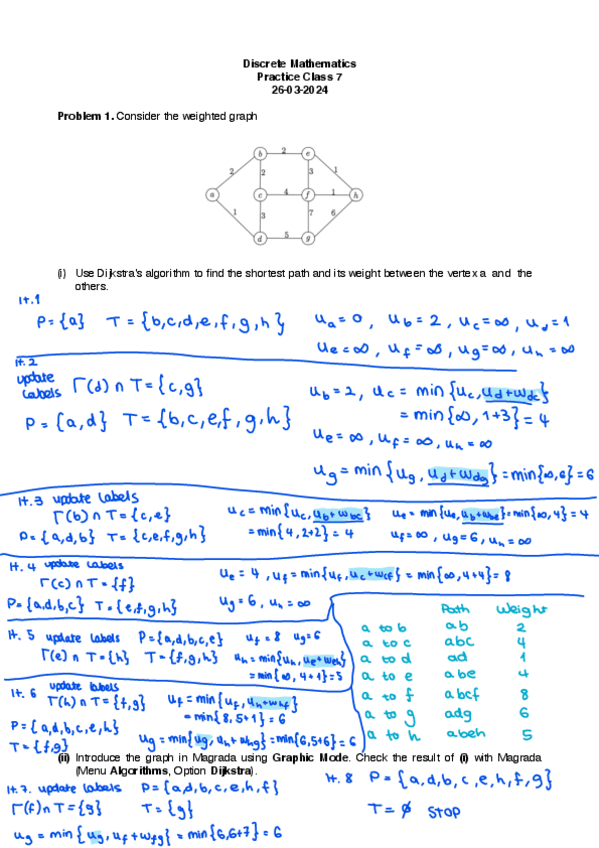 Discrete Mathematics
Practice Class 7
26-03-2024
Problem 1. Consider the weighted graph
b 2 e
2 2 3 1
a c 4 f 1 h
1 3 7 6
d 5 g
(i) Use Dijkstra's algorithm to find the shortest path and its weight between the vertex a and the
others.
It.1
P={a} T={b,c,d,e,f,g,h} ua=0, ub=2, uc=∞, ud=1
ue=∞, uf=∞, ug=∞, uh=∞
It.2
update
labels Γ(d)∩T={c,g} ub=2, uc=min{uc,ud+wdc}
=min{∞,1+3}=4
P={a,d} T={b,c,e,f,g,h}
ue=∞, uf=∞, uh=∞
ug=min{ug,ud+wdg}=min{∞,6}=6
It.3 update labels
Γ(b)∩T={c,e} uc=min{uc,ub+wbc} ue=min{ue,ub+wbe}=min{∞,4}=4
P={a,d,b} T={c,e,f,g,h} =min{4,2+2}=4 uf=∞, ug=6, uh=∞
It.4 update labels
Γ(c)∩T={f} ue=4, uf=min{uf,uc+wcf}=min{∞,4+4}=8
P={a,d,b,c} T={e,f,g,h} ug=6, uh=∞
It. 5 update labels P={a,d,b,c,e} uf=8 ug=6
Γ(e)∩T={h} T={f,g,h} uh=min{uh,ue+weh}
=min{∞,4+1}=5
It.6 update labels
Γ(h)∩T={f,g} uf=min{uf,uh+whf}
=min{8,5+1}=6
P={a,d,b,c,e,h}
T={f,g} ug=min{ug,uh+whg}=min{6,5+6}=6
Path Weight
a to b ab 2
a to c abc 4
a to d ad 1
a to e abe 4
a to f abcf 8
a to g adg 6
a to h abeh 5
(ii) Introduce the graph in Magrada using Graphic Mode. Check the result of (i) with Magrada
(Menu Algorithms, Option Dijkstra).
It.7. update labels P={a,d,b,c,e,h,f}
Γ(f)∩T={g} T={g}
ug=min{ug,uf+wfg}=min{6,6+7}=6
It.8 P={a,d,b,c,e,h,f,g}
T=∅ STOP